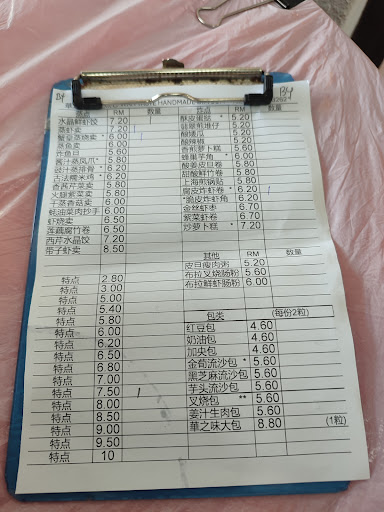 B4
B4
HANDMADE
蒸点 RM 数量
水晶鲜虾饺 7.20
蒸虾卖 7.20 1
蟹皇蒸烧卖 * 6.00
蒸鱼卖 6.00
炸鱼日 5.60
酱汁蒸凤爪 * 5.80
豉汁蒸排骨 * 6.20
古法糯米鸡 * 6.20
香茜芹菜卖 5.80
火腿紫菜卖 5.80
干蒸香菇卖 6.00
蚝油菜肉抄手 6.00
虾烧卖 6.50
莲藕腐竹卷 6.50
西芹水晶饺 7.20
带子虾卖 8.50
特点 2.80
特点 3.00
特点 5.00
特点 5.40
特点 5.80
特点 6.00
特点 6.20
特点 6.50
特点 6.80
特点 7.00
特点 7.50 1
特点 8.00
特点 8.50
特点 9.00
特点 9.50
特点 10
RM 数量
酥皮蛋挞 * 5.20
5.20
酸矮瓜 5.20
酸辣椒 5.20
香煎萝卜糕 5.60
蜂巢芋角 * 6.00
酸姜皮旦卷 5.80
甜酸鲜竹卷 5.80
上海煎锅贴 5.80
腐皮炸虾卷 * 6.20 1
*脆皮炸虾角 6.20
金丝虾枣 6.70
紫菜虾卷 6.70
炒萝卜糕 * 7.20
其他 RM 数量
皮旦瘦肉粥 5.20
布拉叉烧肠粉 5.60
布拉鲜虾肠粉 6.00
包类 (每份2粒)
红豆包 4.60
奶油包 4.60
加央包 4.60
金荀流沙包 * 5.60
黑芝麻流沙包 5.60
芋头流沙包 5.60
叉烧包 ** 5.60
姜汁生肉包 5.60
華之味大包 8.80 (1粒)